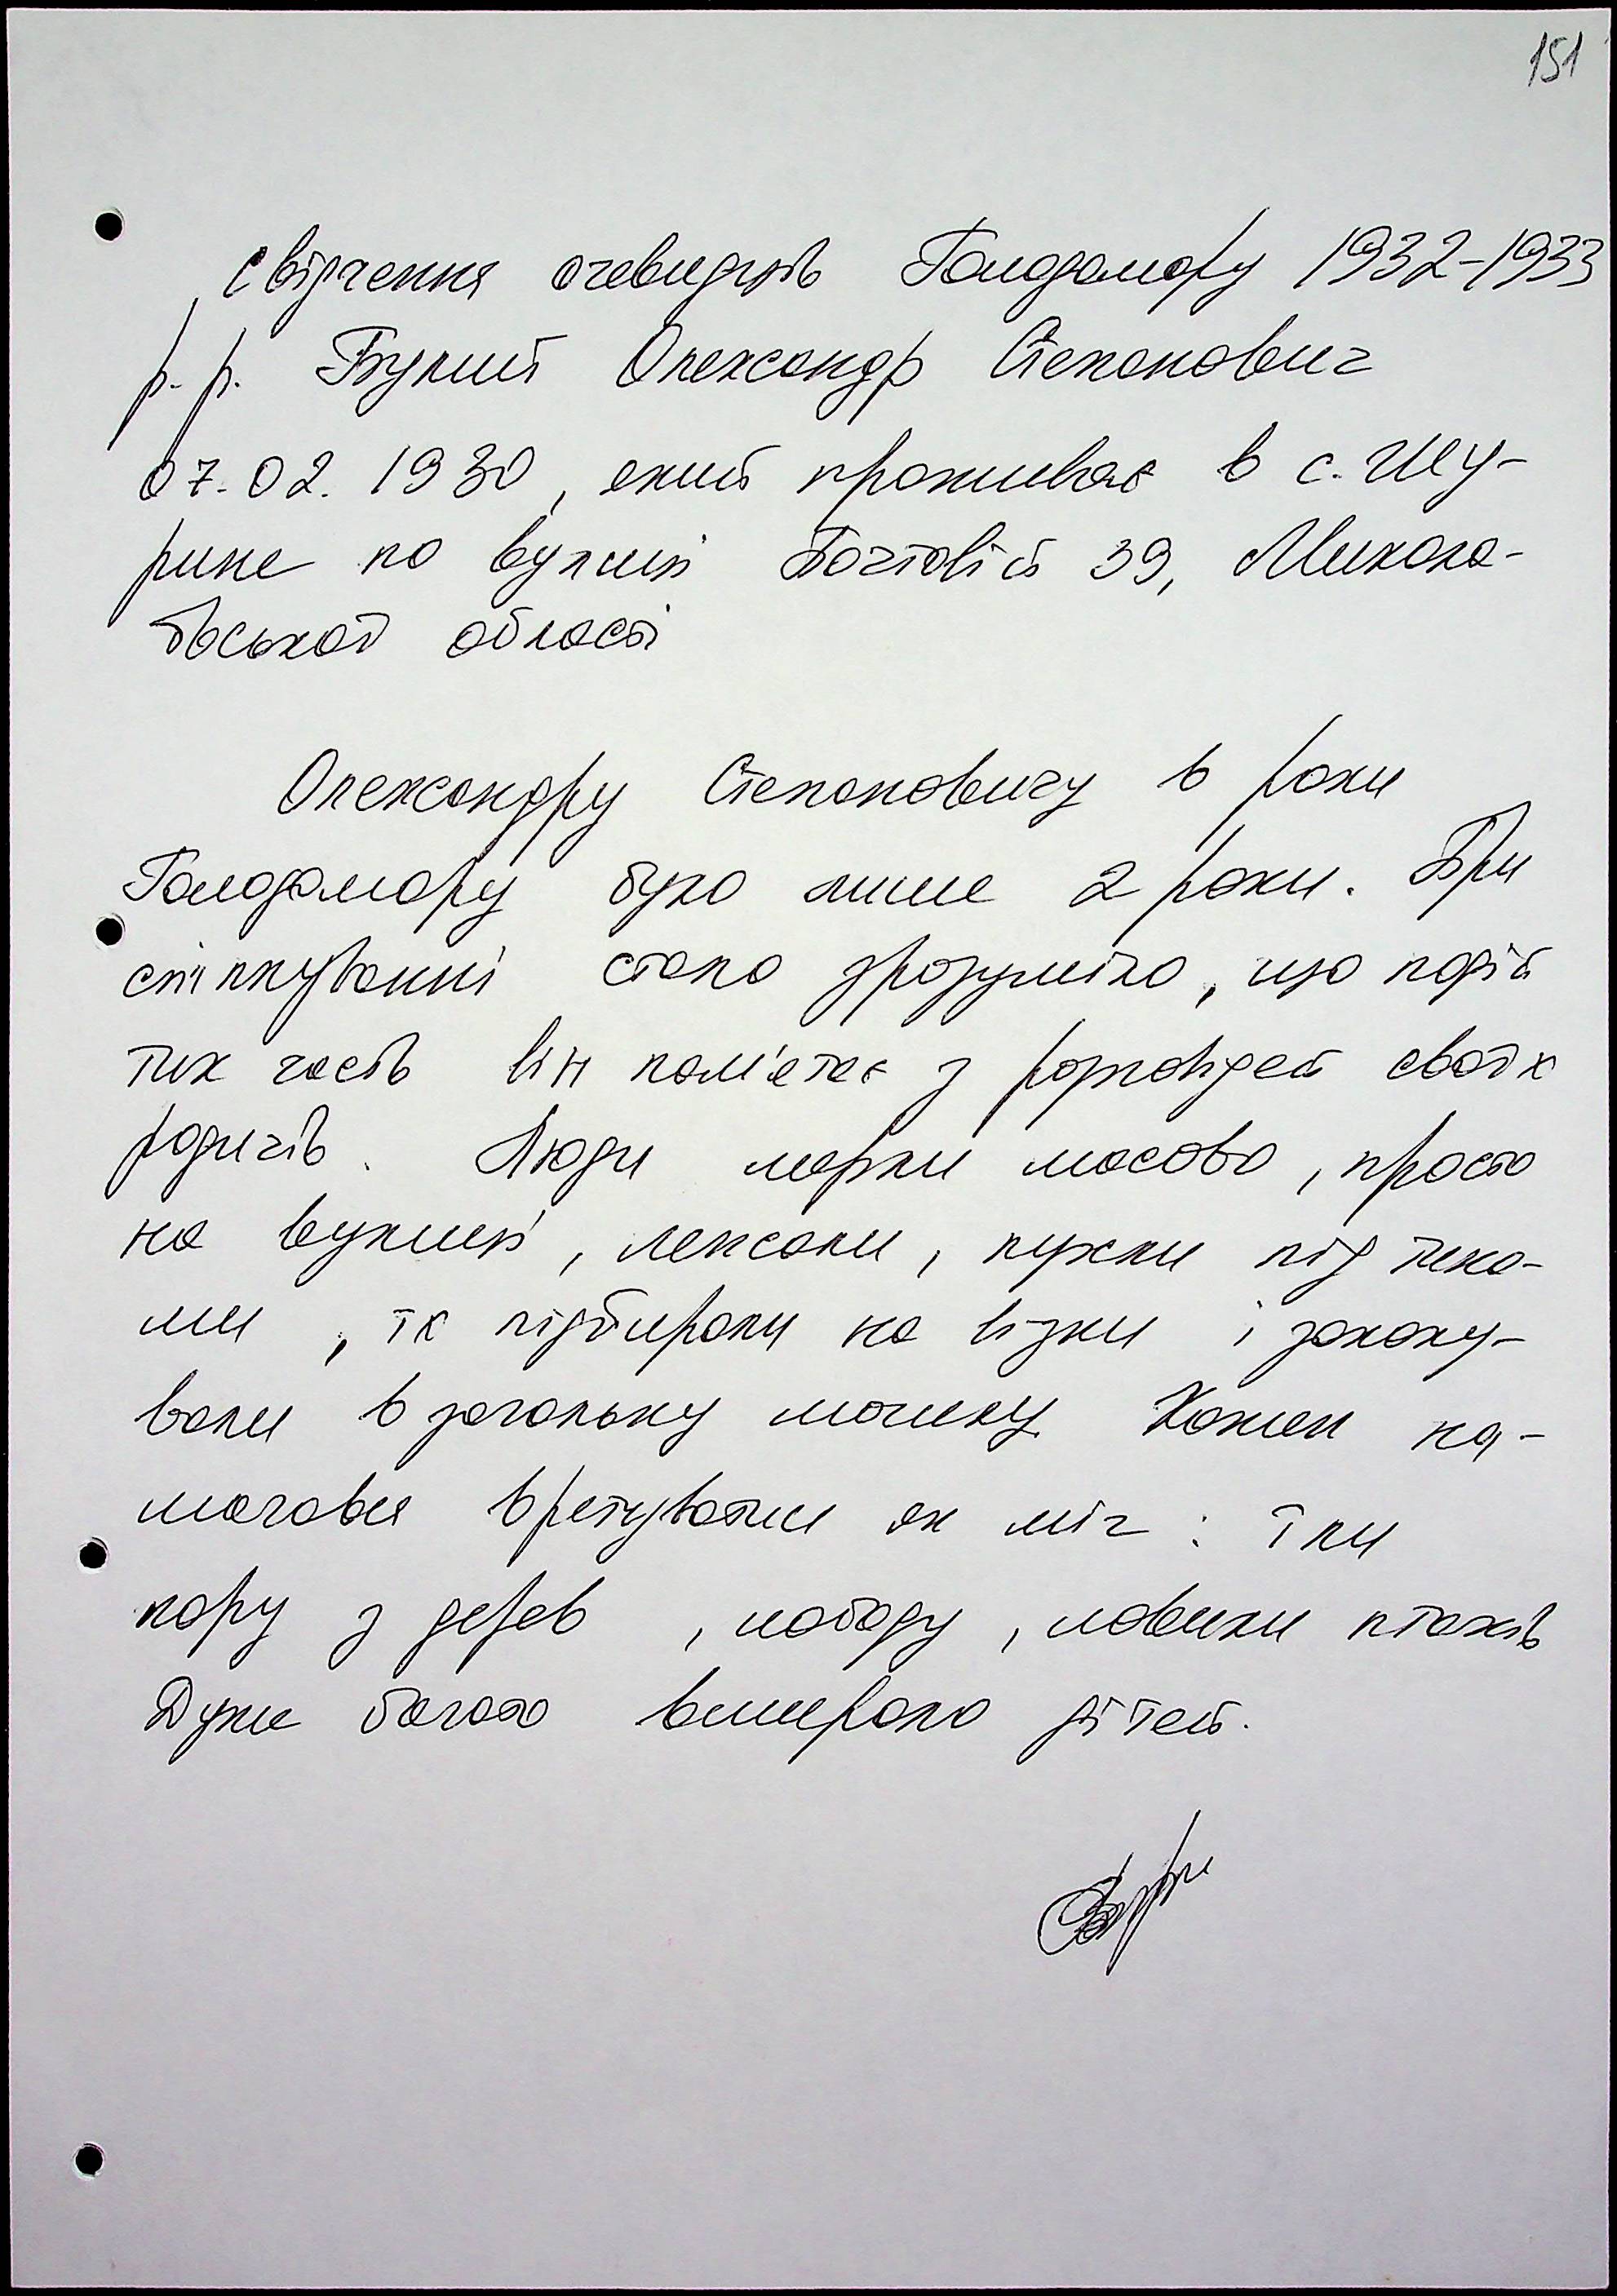 151
Свідчення очевидців Голодомору 1932-1933
р.р. Булий Олександр Степанович
07.02.1930, який проживає в с. Шу-
рине по вулиці Поштовій 39, Микола-
ївської області
Олександру Степановичу в роки
Голодомору було лише 2 роки. При
спілкуванні стало зрозуміло, що події
тих часів він пам'ятає з розповідей своїх
родичів. Люди мерли масово, просто
на вулиці, лежали, пухли під тина-
ми, їх підбирали на візки і закопу-
вали в загальну могилу. Кожен на-
магався врятуватись як міг: їли
кору з дерев, лободу, ловили птахів
Дуже багато вмирало дітей.